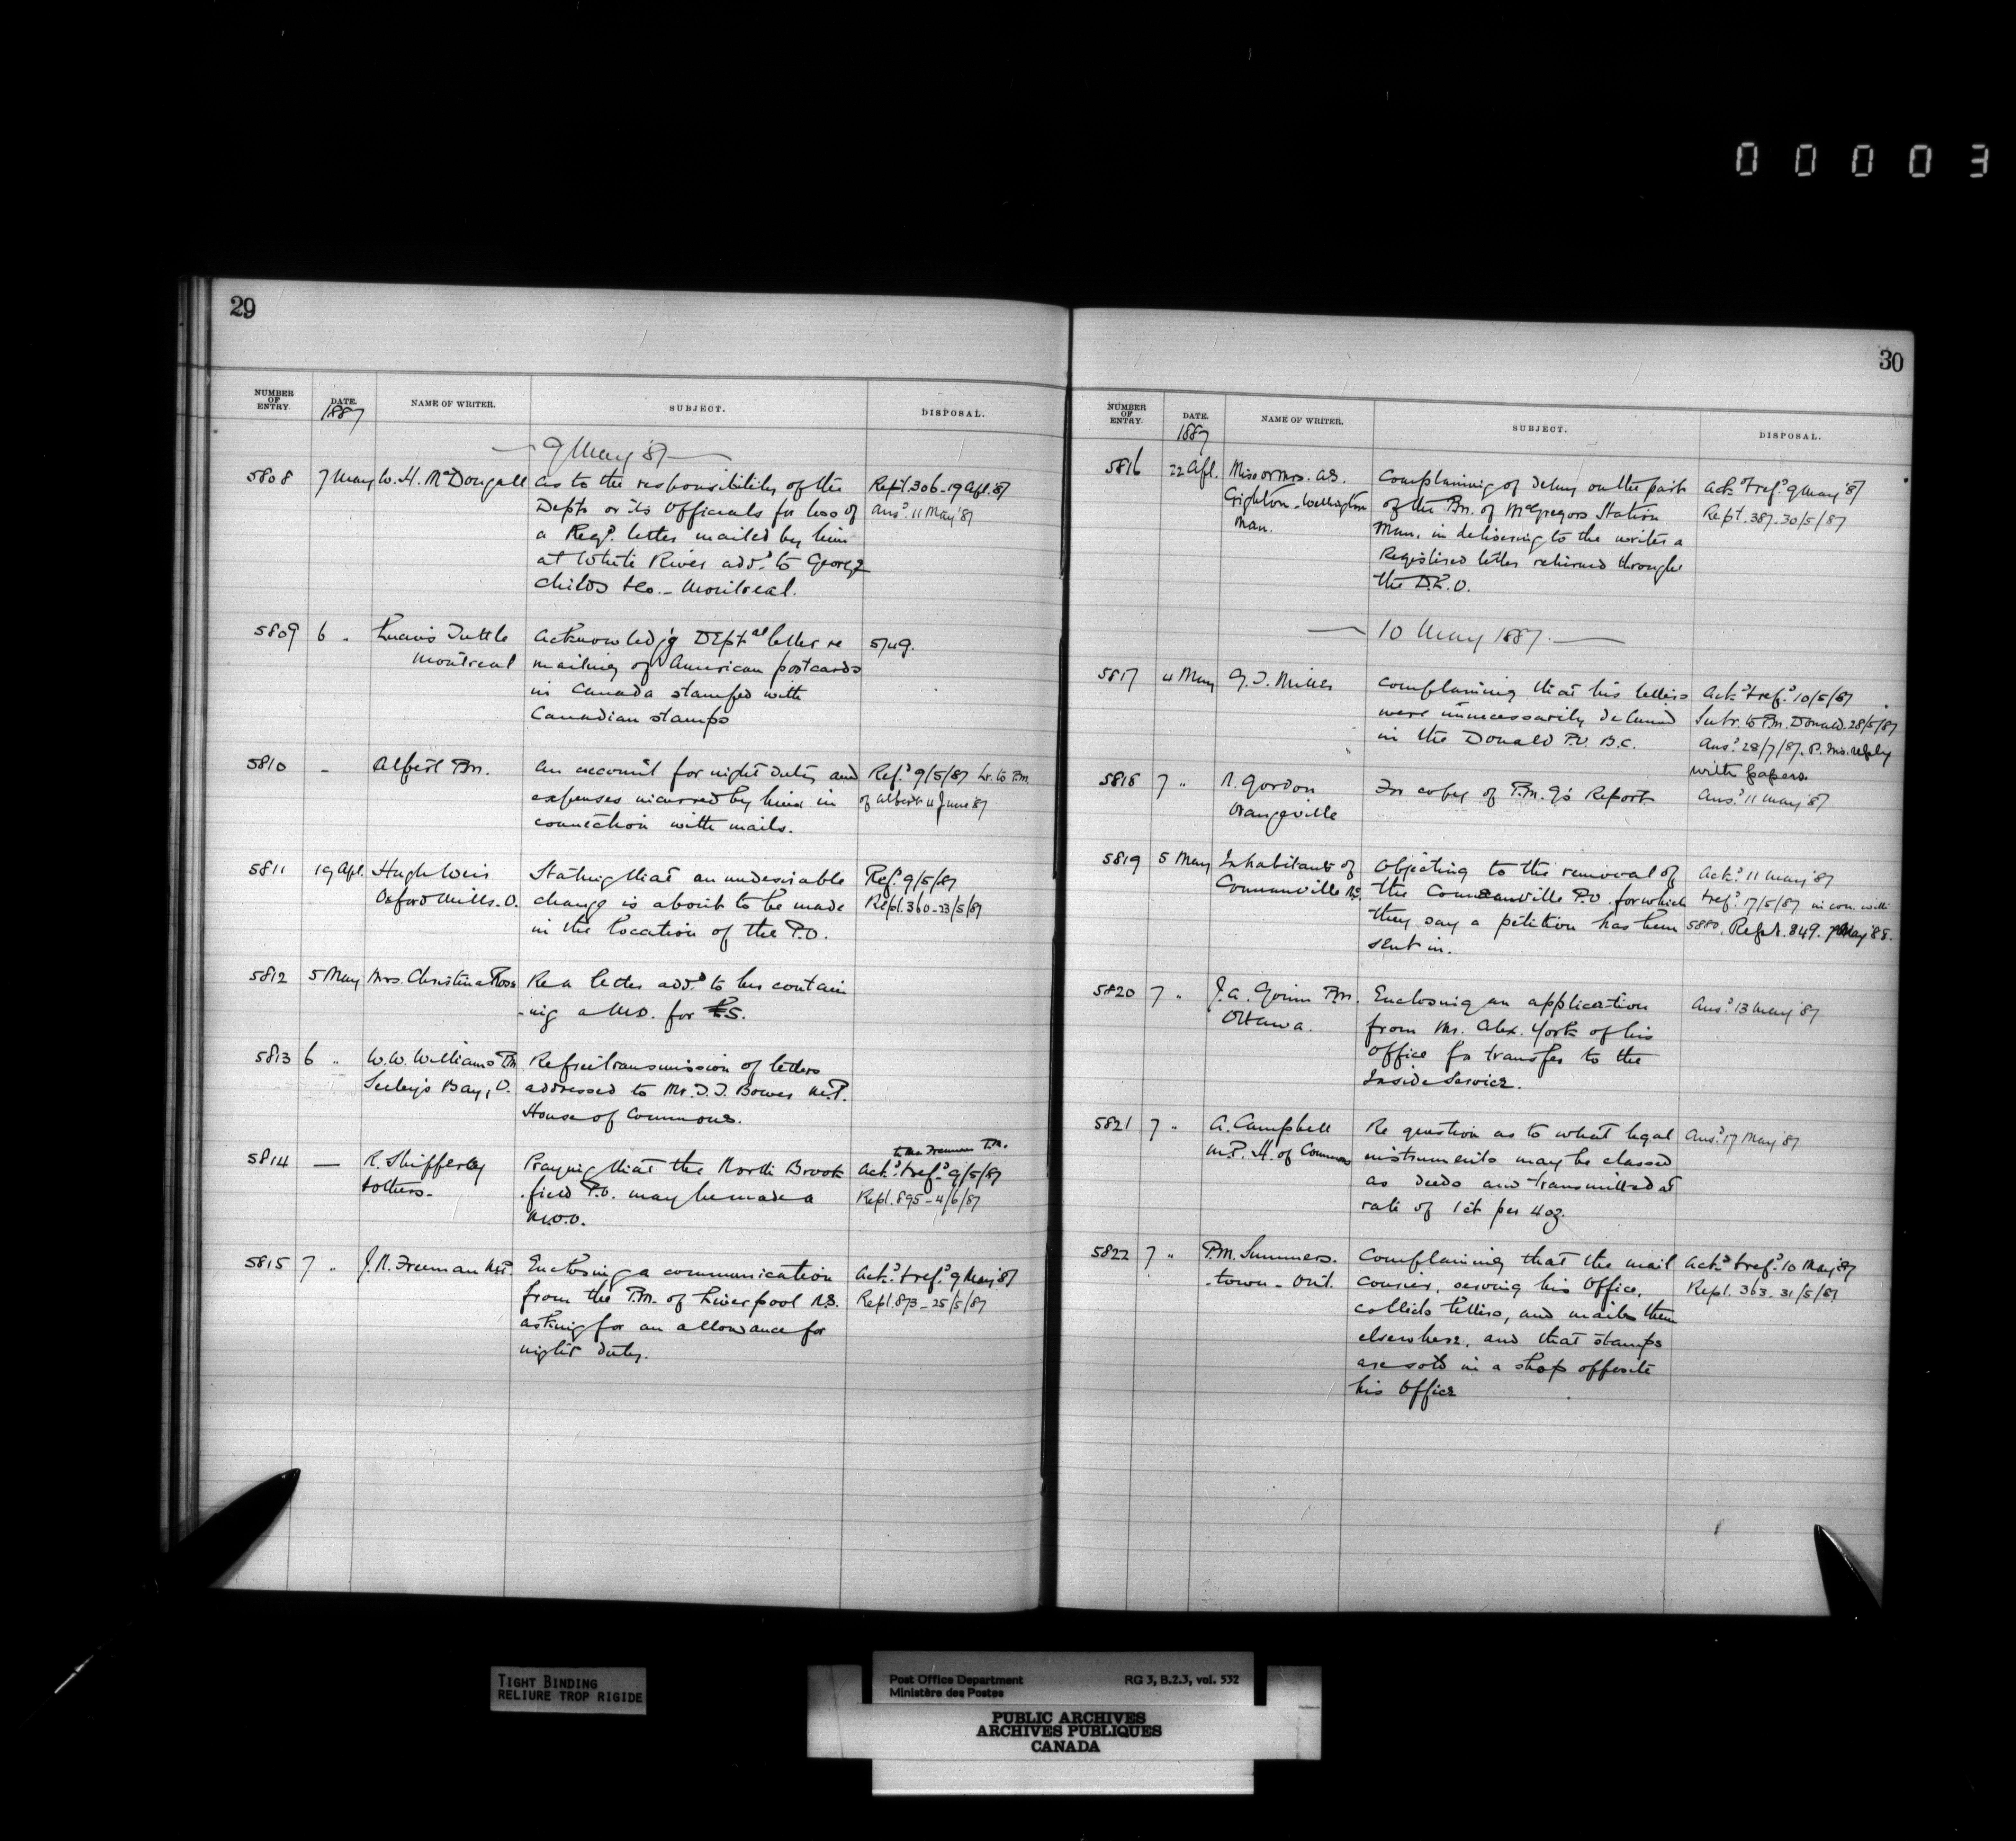 00003
29
NUMBER OF ENTRY. DATE. NAME OF WRITER. SUBJECT. DISPOSAL.
1887
9 May '87
5808 7 May W. H. McDougall As to the responsibility of the Rept. 306 - 19 Apl. '87
Dept. or its Officials for loss of Ansd. 11 May '87
a Regd. letter mailed by him
at White River add. to George
Childs & Co. - Montreal.
5809 6 " Tuttle Acknowledg'g Deptal letter re 5749.
Montreal mailing of American postcards
in Canada stamped with
Canadian stamps
5810 - Albert Pm. An account for night duty and Refd. 9/5/87 Lr. to Pm.
expenses incurred by him in of Albert 4 June '87
connection with mails.
5811 19 Apl. Hugh Weir Stating that an undesirable Refd. 9/5/87
Oxford Mills. O. change is about to be made Rept. 360 - 23/5/87
in the location of the P.O.
5812 5 May Mrs. Christina Ross Re a letter addd. to her contain
-ing a M.O. for £5.
5813 6 " W. W. Williams Pm Re free transmission of letters
Seeley's Bay, O. addressed to Mr. Bowes M.P.
House of Commons.
to Mr. Freeman P.M.
5814 — R. Shifferley Praying that the North Brook Ackd. & refd. 9/5/87
& others - field P.O. may be made a Rept. 895 - 4/6/87
M.O.O.
5815 7 " J. N. Freeman M.P. Enclosing a communication Ackd. & refd. 9 May '87
from the P.M. of Liverpool N.S. Rept. 873 - 25/5/87
asking for an allowance for
night duty.
30
NUMBER OF ENTRY. DATE. NAME OF WRITER. SUBJECT. DISPOSAL.
1887
5816 22 Apl. Miss or Mrs. Complaining of delay on the part Ackd. & refd. 9 May '87
Wellington of the Pm. of McGregors Station Rept. 387 - 30/5/87
Man. Man. in delivering to the writer a
Registered letter returned through
the D.L.O.
10 May 1887.
5817 4 May G. J. Miller Complaining that his letters Ackd. & refd. 10/5/87
were unnecessarily detained to Pm. Donald 28/5/87
in the Donald P.O. B.C. Ansd. 28/7/87. P. Ms. reply
with papers
5818 7 " R. Gordon For copy of P.M.G's Report Ansd. 11 May '87
Orangeville
5819 5 May Inhabitants of Objecting to the removal of Ackd. 11 May '87
the P.O. for which & refd. 17/5/87 in con. with
they say a petition has been 5880. Rept. 849. 7 May '88.
sent in.
5820 7 " J. A. Gouin Pm. Enclosing an application Ansd. 13 May '87
Ottawa. from Mr. Alex. York of his
Office for transfer to the
Inside Service.
5821 7 " A. Campbell Re question as to what legal Ansd. 17 May '87
M.P. H. of Commons instruments may be classed
as deeds and transmitted at
rate of 1 ct per 4 oz.
5822 7 " P.M. Summers- Complaining that the mail Ackd. & refd. 10 May '87
-town - Ont. courier, serving his Office, Rept. 363 - 31/5/87
collects letters, and mails them
elsewhere, and that stamps
are sold in a shop opposite
his Office
TIGHT BINDING
RELIURE TROP RIGIDE
Post Office Department RG 3, B.2.3, vol. 532
Ministère des Postes
PUBLIC ARCHIVES
ARCHIVES PUBLIQUES
CANADA